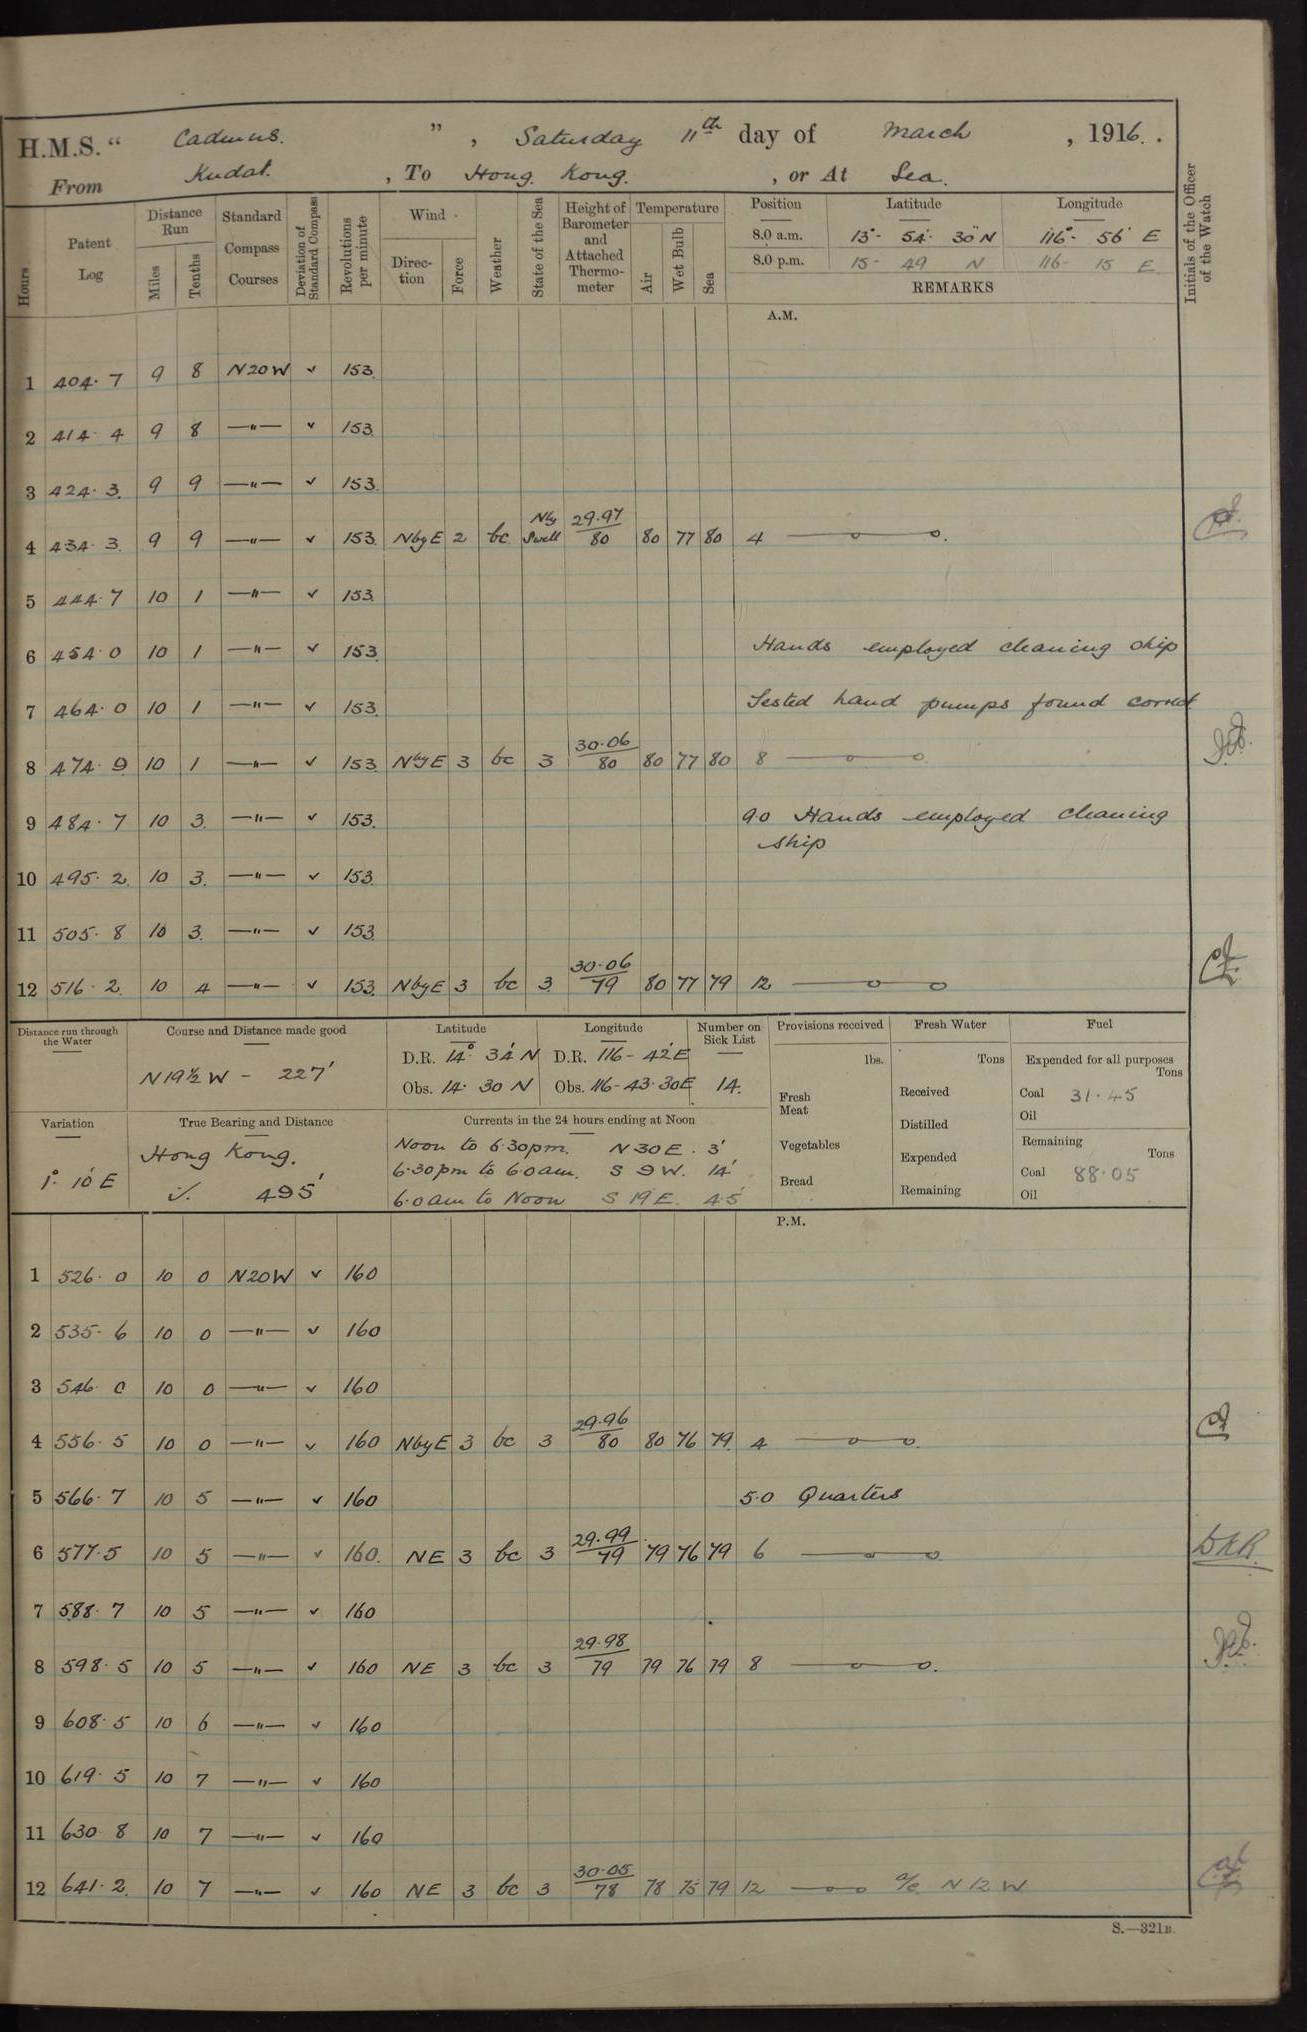 H.M.S. " Cadmus. ", Saturday 11th day of March, 1916.
From Kudat., To Hong Kong., or At Sea.
Hours
Patent Log
Distance Run
Miles
Tenths
Standard Compass Courses
Deviation of Standard Compass
Revolutions per minute
Wind
Direction
Force
Weather
State of the Sea
Height of Barometer and Attached Thermometer
Temperature
Air
Wet Bulb
Sea
Position Latitude Longitude
8.0 a.m. 13°- 54'- 30" N 116°- 56' E
8.0 p.m. 15- 49 N 116- 15 E
REMARKS
Initials of the Officer of the Watch
A.M.
1 404.7 9 8 N20W ✓ 153
2 414.4 9 8 —"— ✓ 153
3 424.3 9 9 —"— ✓ 153
4 434.3 9 9 —"— ✓ 153 NbyE 2 bc Nly Swell 29.97/80 80 77 80 4
5 444.7 10 1 —"— ✓ 153
6 454.0 10 1 —"— ✓ 153 Hands employed cleaning ship
7 464.0 10 1 —"— ✓ 153 Tested hand pumps found correct
8 474.9 10 1 —"— ✓ 153 NbyE 3 bc 3 30.06/80 80 77 80 8
9 484.7 10 3 —"— ✓ 153 9.0 Hands employed cleaning
ship
10 495.2 10 3 —"— ✓ 153
11 505.8 10 3 —"— ✓ 153
12 516.2 10 4 —"— ✓ 153 NbyE 3 bc 3 30.06/79 80 77 79 12
Distance run through the Water
Course and Distance made good
N19½W - 227'
Latitude
D.R. 14° 34' N
Obs. 14. 30 N
Longitude
D.R. 116- 42' E
Obs. 116-43-30E
Number on Sick List
14.
Provisions received
lbs.
Fresh Meat
Vegetables
Bread
Fresh Water
Tons
Received
Distilled
Expended
Remaining
Fuel
Expended for all purposes
Tons
Coal 31.45
Oil
Remaining
Tons
Coal 88.05
Oil
Variation
1° 10' E
True Bearing and Distance
Hong Kong.
495'
Currents in the 24 hours ending at Noon
Noon to 6.30pm. N 30 E. 3'
6.30pm to 6.0am. S 9 W. 14'
6.0am to Noon S 19 E. 4.5'
P.M.
1 526.0 10 0 N20W ✓ 160
2 535.6 10 0 —"— ✓ 160
3 546.0 10 0 —"— ✓ 160
4 556.5 10 0 —"— ✓ 160 NbyE 3 bc 3 29.96/80 80 76 79 4
5 566.7 10 5 —"— ✓ 160 5.0 Quarters
6 577.5 10 5 —"— ✓ 160 NE 3 bc 3 29.99/79 79 76 79 6
7 588.7 10 5 —"— ✓ 160
8 598.5 10 5 —"— ✓ 160 NE 3 bc 3 29.98/79 79 76 79 8
9 608.5 10 6 —"— ✓ 160
10 619.5 10 7 —"— ✓ 160
11 630.8 10 7 —"— ✓ 160
12 641.2 10 7 —"— ✓ 160 NE 3 bc 3 30.05/78 78 75 79 12 a/c N 12 W
S.—321B.